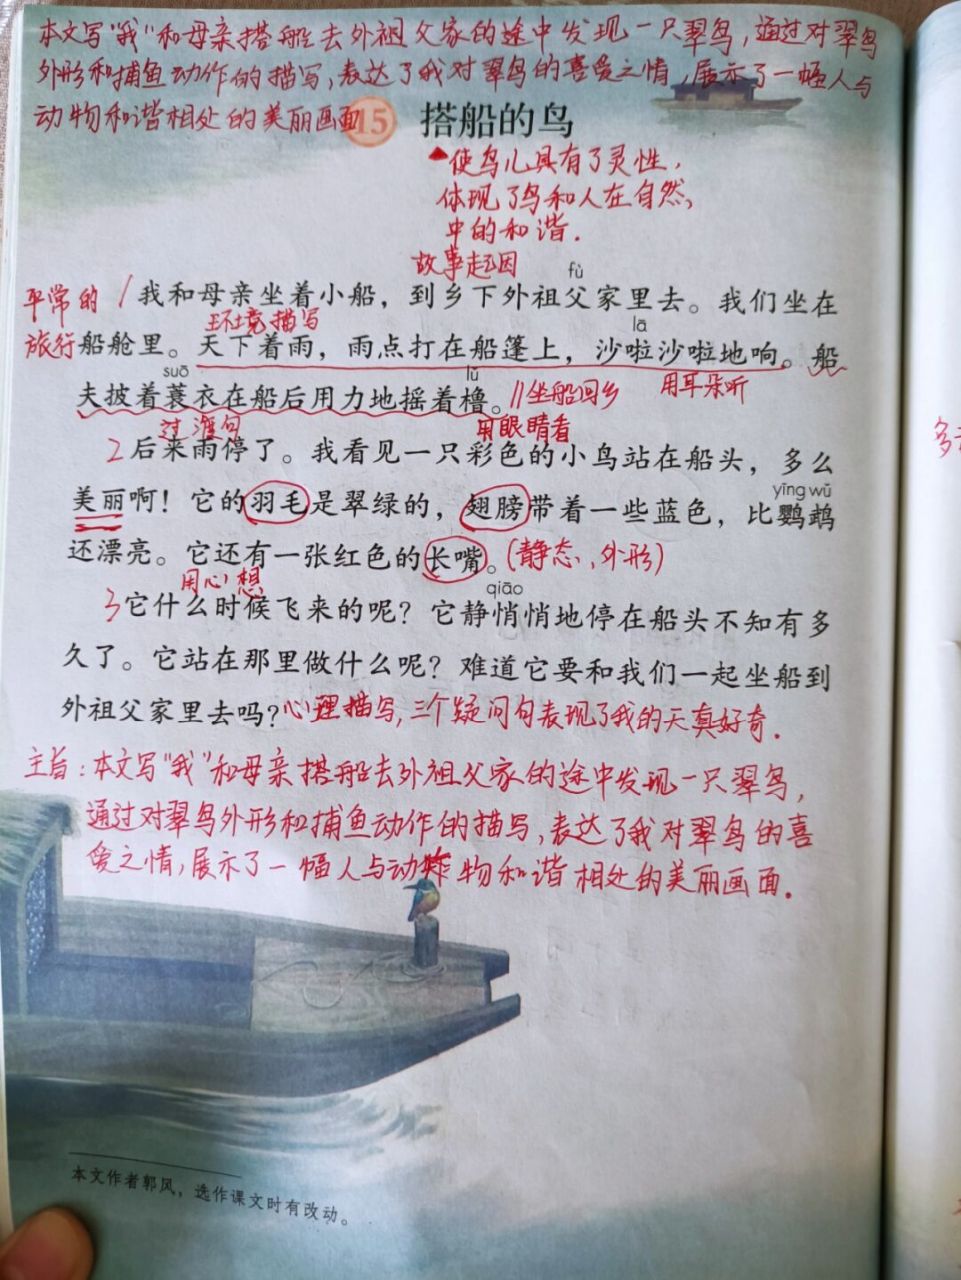 本文写“我”和母亲搭船去外祖父家的途中发现一只翠鸟，通过对翠鸟
外形和捕鱼动作的描写，表达了我对翠鸟的喜爱之情，展示了一幅人与
动物和谐相处的美丽画面
15 搭船的鸟
使鸟儿具有了灵性，
体现了鸟和人在自然
中的和谐.
故事起因
fù
平常的
1 我和母亲坐着小船，到乡下外祖父家里去。我们坐在
环境描写
lā
旅行
船舱里。天下着雨，雨点打在船篷上，沙啦沙啦地响。船
suō
lǔ
用耳朵听
夫披着蓑衣在船后用力地摇着橹。 // 坐船回乡
过渡句
用眼睛看
2 后来雨停了。我看见一只彩色的小鸟站在船头，多么
yīng wǔ
美丽啊！它的羽毛是翠绿的，翅膀带着一些蓝色，比鹦鹉
还漂亮。它还有一张红色的长嘴。(静态、外形)
用心想
qiāo
3 它什么时候飞来的呢？它静悄悄地停在船头不知有多
久了。它站在那里做什么呢？难道它要和我们一起坐船到
外祖父家里去吗？心理描写，三个疑问句表现了我的天真好奇.
主旨：本文写“我”和母亲搭船去外祖父家的途中发现一只翠鸟，
通过对翠鸟外形和捕鱼动作的描写，表达了我对翠鸟的喜
爱之情，展示了一幅人与动物和谐相处的美丽画面.
本文作者郭风，选作课文时有改动。